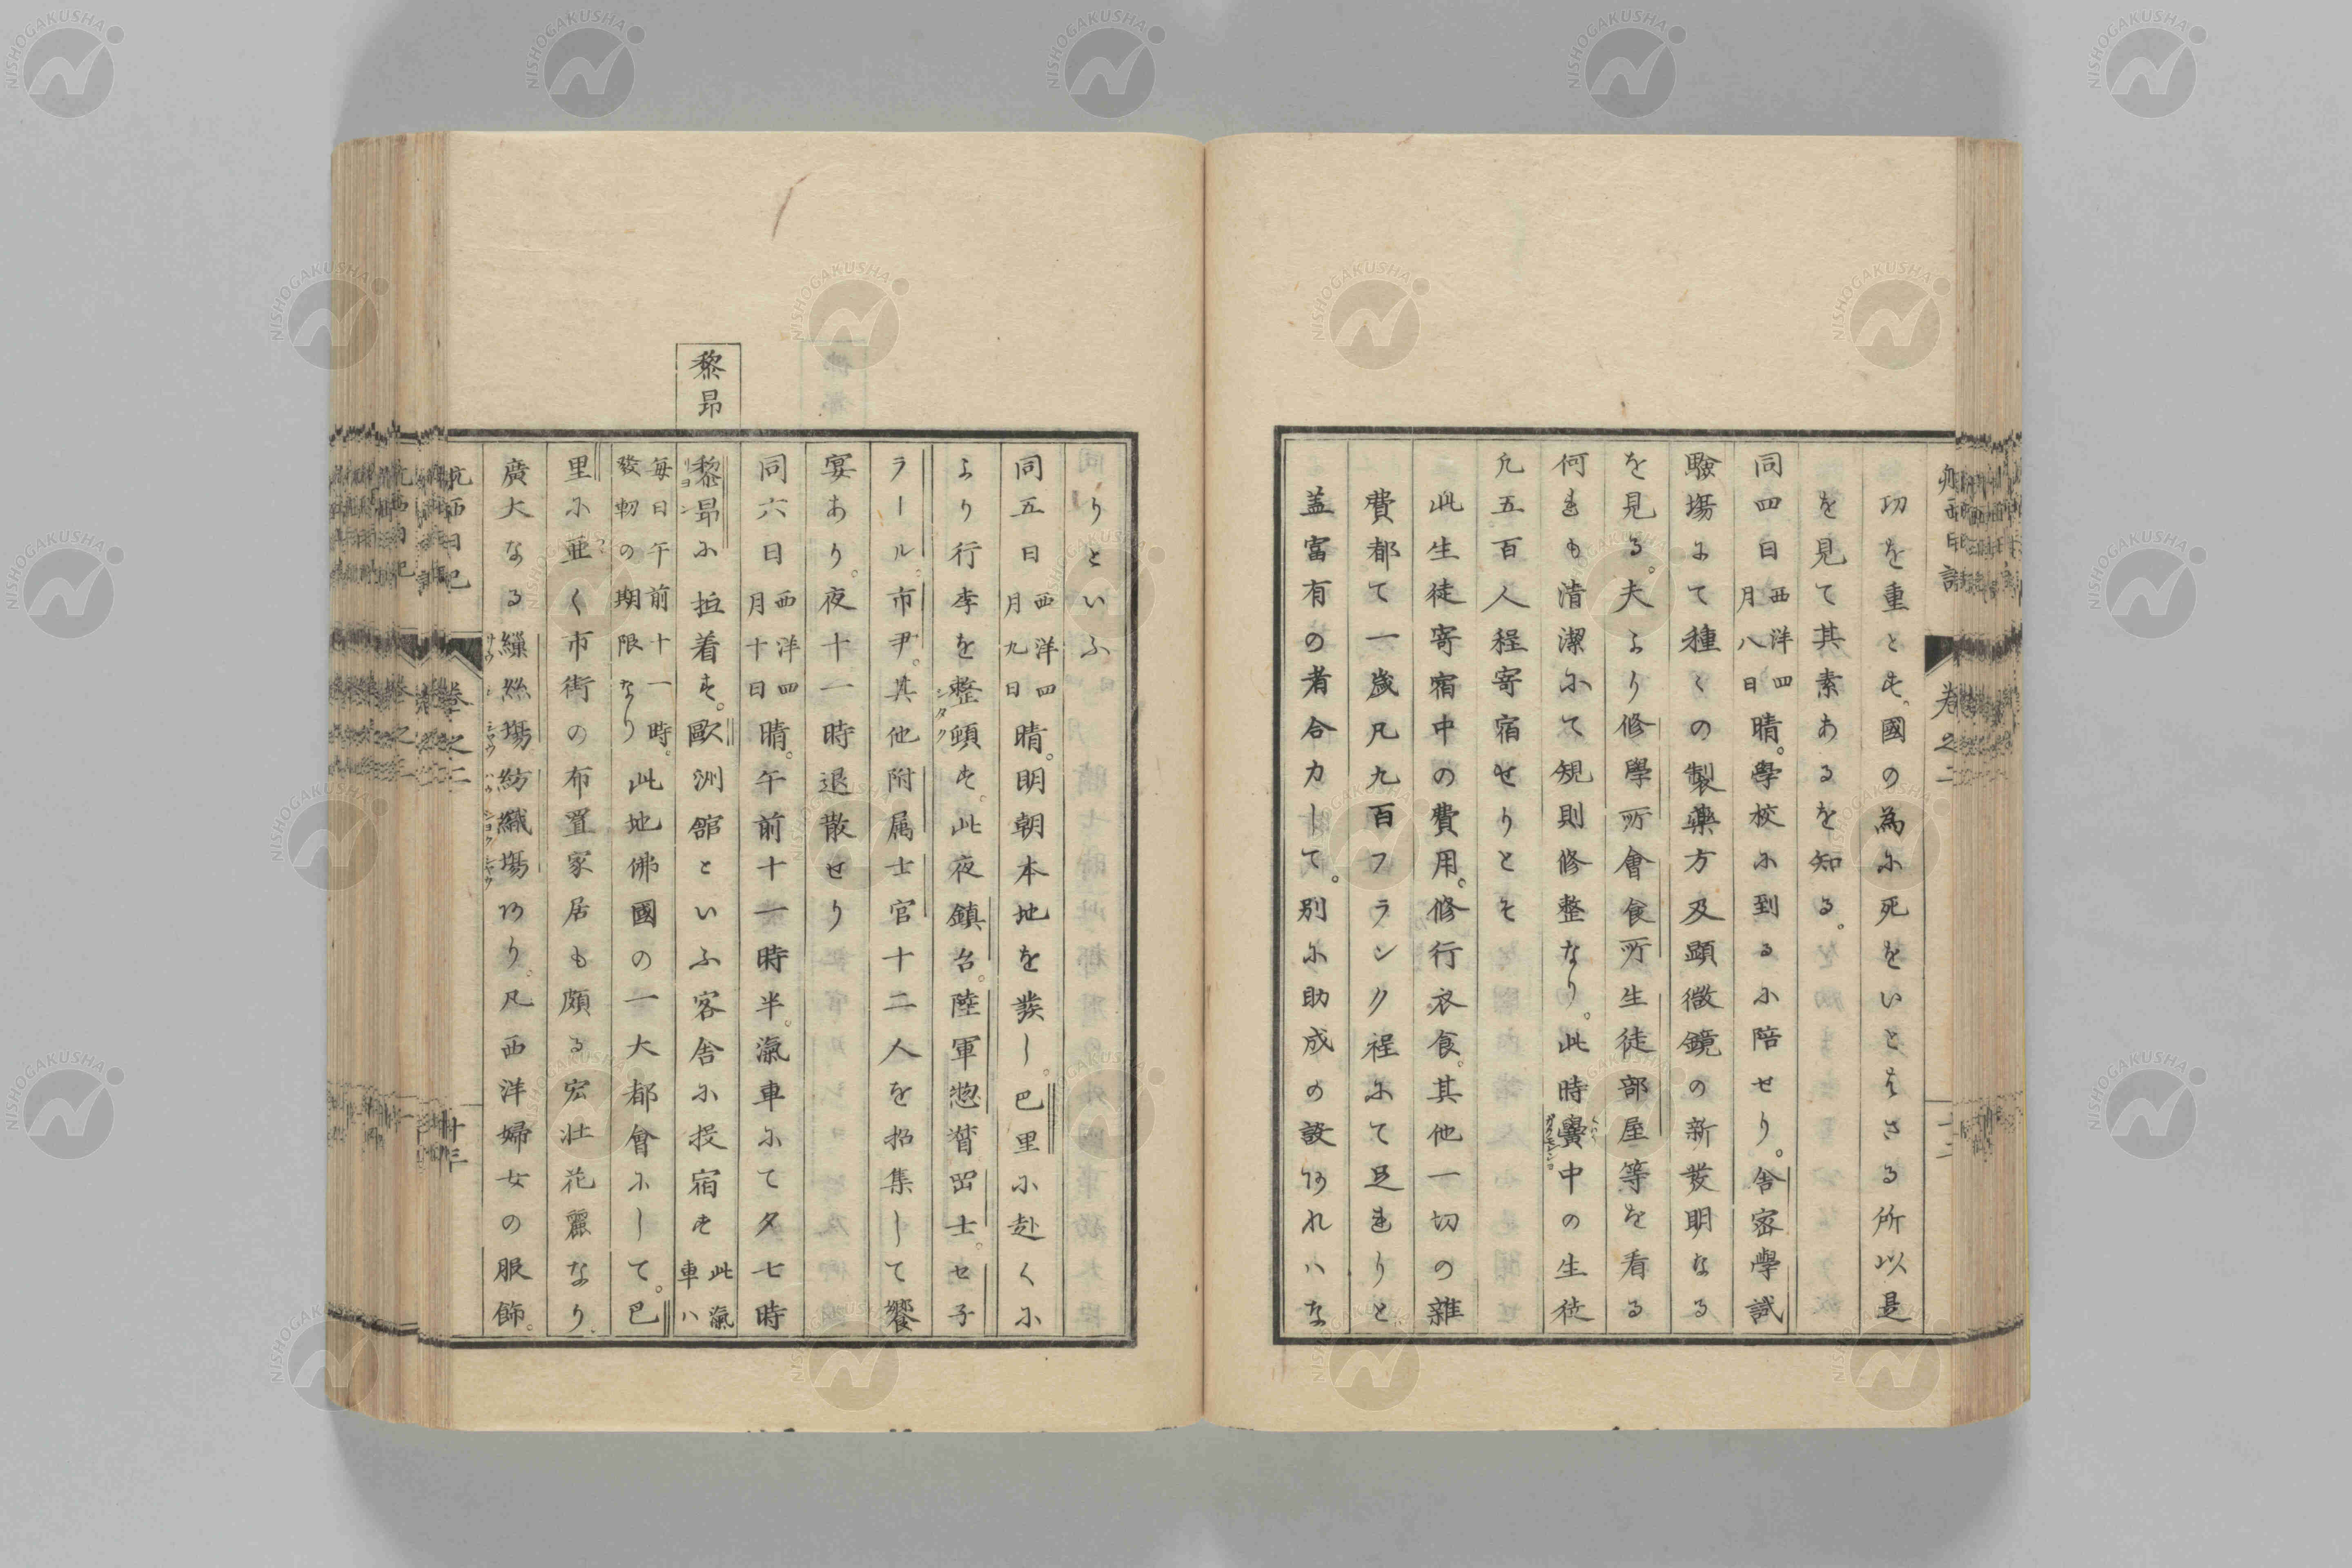 航西日記 卷之二
功を重とす。國の為に死をいとはさる所以是
を見て其素あるを知る。
同四日西洋四月八日晴。學校に到るに陪せり。舎密學試
驗場にて種〻の製藥方及顕微鏡の新發明なる
を見る。夫より修學所會食所生徒部屋等を看る
何れも清潔にて規則修整なり。此時黌中の生徒
凡五百人程寄宿せりとそ
此生徒寄宿中の費用。修行衣食。其他一切の雜
費都て一歳凡九百フランク程にて足れりと
蓋富有の者合力して。別に助成の設あれハな
りといふ
同五日西洋四月九日晴。明朝本地を發し。巴里に赴くに
より行李を整頓す。此夜鎮台。陸軍惣督。書士。セ子
ラール。市尹。其他附属士官十二人を招集して饗
宴あり。夜十一時退散せり
同六日西洋四月十日晴。午前十一時半。滊車にて夕七時
黎昂
黎昂に抵着す。歐洲舘といふ客舎に投宿す此滊車ハ
毎日午前十一時。發軔の期限なり此地佛國の一大都會にして。巴
里に亜く市街の布置家居も頗る宏壮花麗なり
廣大なる繰絲塲紡織塲あり。凡西洋婦女の服飾。
航西日記 卷之二 十三